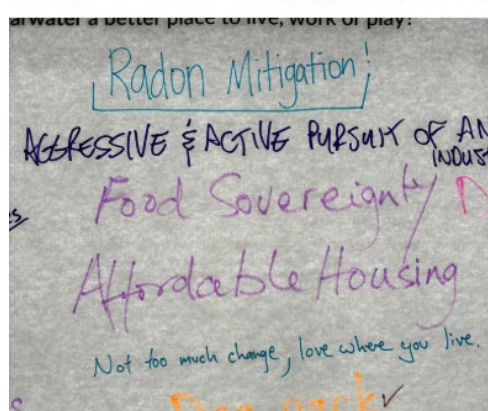 arwater a better place to live, work or play?
Radon Mitigation!
AGGRESSIVE & ACTIVE PURSUIT OF AN
INDUS
Food Sovereignty
Affordable Housing
Not too much change, love where you live.
Dog park ✓